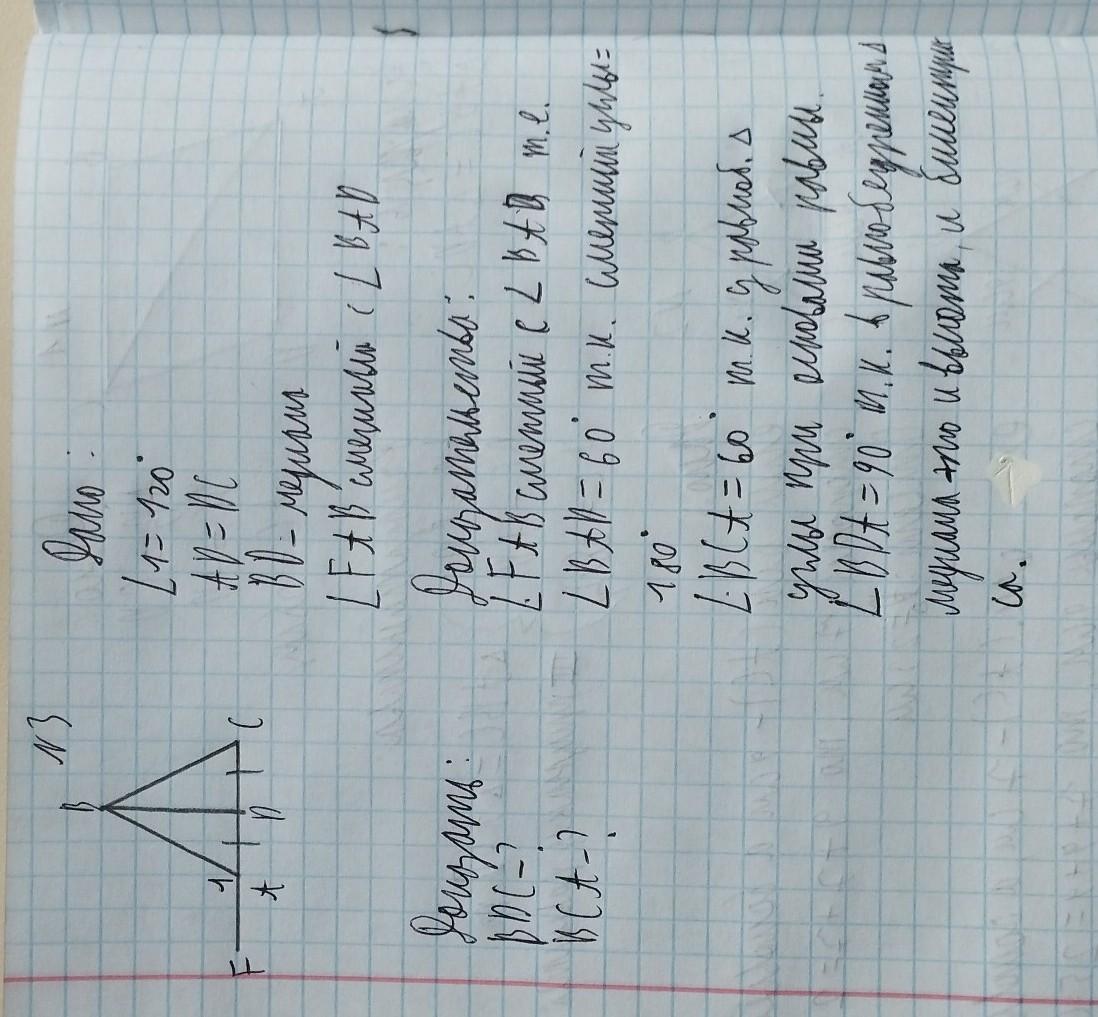 N3
B
1
F A D C
Дано:
∠1=120°
AD=DC
BD-медиана
∠FAB смежный с ∠BAD
Доказать:
BDC-?
BCA-?
Доказательство:
∠FAB смежный с ∠BAD т.е.
∠BAD=60° т.к. смежный углы=
180°
∠BCA=60° т.к. у равноб. Δ
углы при основании равны.
∠BDA=90° т.к. в равнобедренном Δ
медиана это и высота, и биссектри
са.